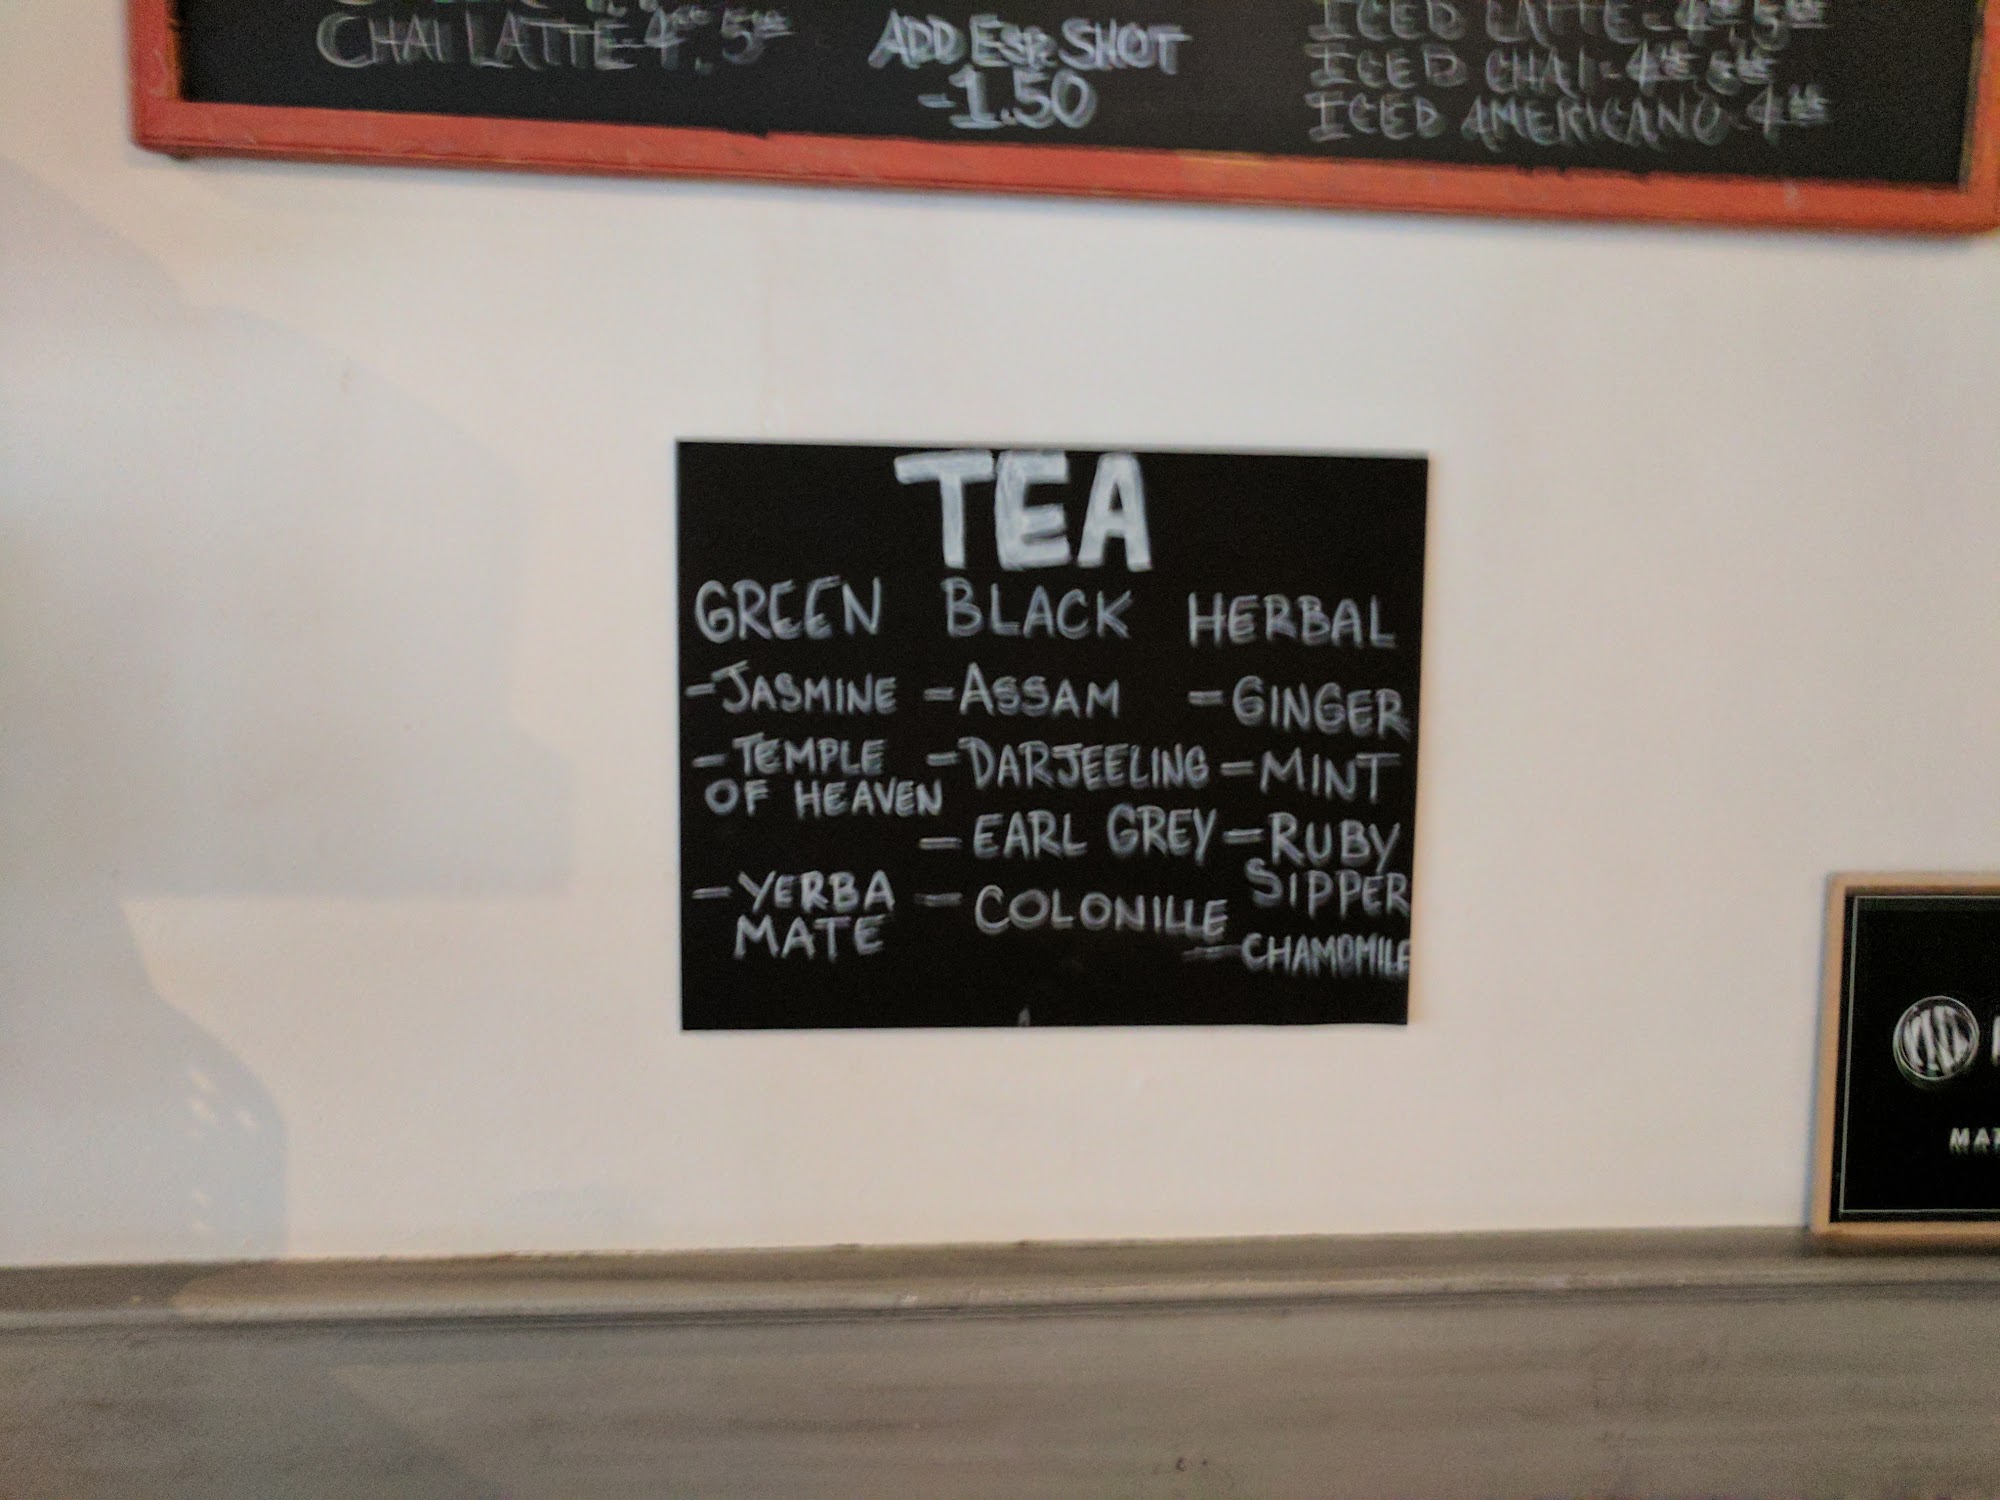 CHAI LATTE 4. 5
ADD ESP. SHOT
-1.50
ICED LATTE - 4 5
ICED CHAI - 4
ICED AMERICANO - 4
TEA
GREEN
-JASMINE
-TEMPLE
OF HEAVEN
-YERBA
MATE
BLACK
-ASSAM
-DARJEELING
-EARL GREY
-COLONILLE
HERBAL
-GINGER
-MINT
-RUBY
SIPPER
-CHAMOMILE
MAT